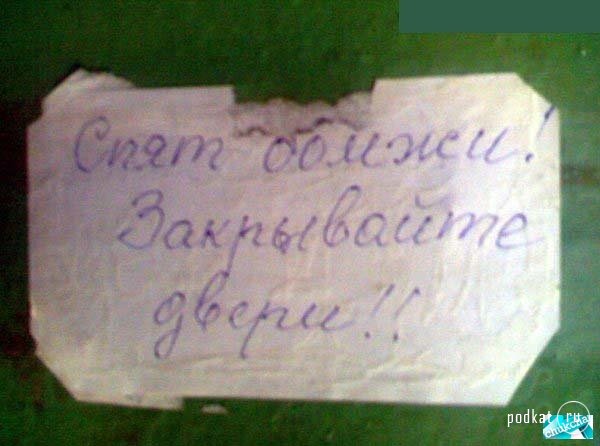 Спят бомжи!
Закрывайте
двери!!
podkat.ru
chukcha